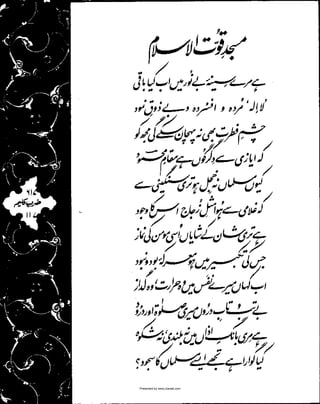 مسجد قوت الاسلام
ہے مرے سینۂ بے نور میں اب کیا باقی
لا الٰہ' مردہ و افسردہ و بے ذوقِ نمود
چشمِ فطرت بھی نہ پہچان سکے گی مجھ کو
کہ ایازی سے دگرگوں ہے مقامِ محمودؔ
کیوں مسلماں نہ خجل ہو تری سنگینی سے
کہ غلامی سے ہوا مثلِ زجاج اس کا وجود
ہے تری شان کے شایاں اسی مومن کی نماز
جس کی تکبیر میں ہو معرکۂ بود و نبود
اب کہاں میرے نفس میں وہ حرارت وہ گداز
بے تب و تابِ دروں میری صلوٰۃ اور درود
ہے مری بانگِ اذاں میں نہ بلندی نہ شکوہ
کیا گوارا ہے تجھے ایسے مسلماں کا سجود؟
ضربِ کلیم